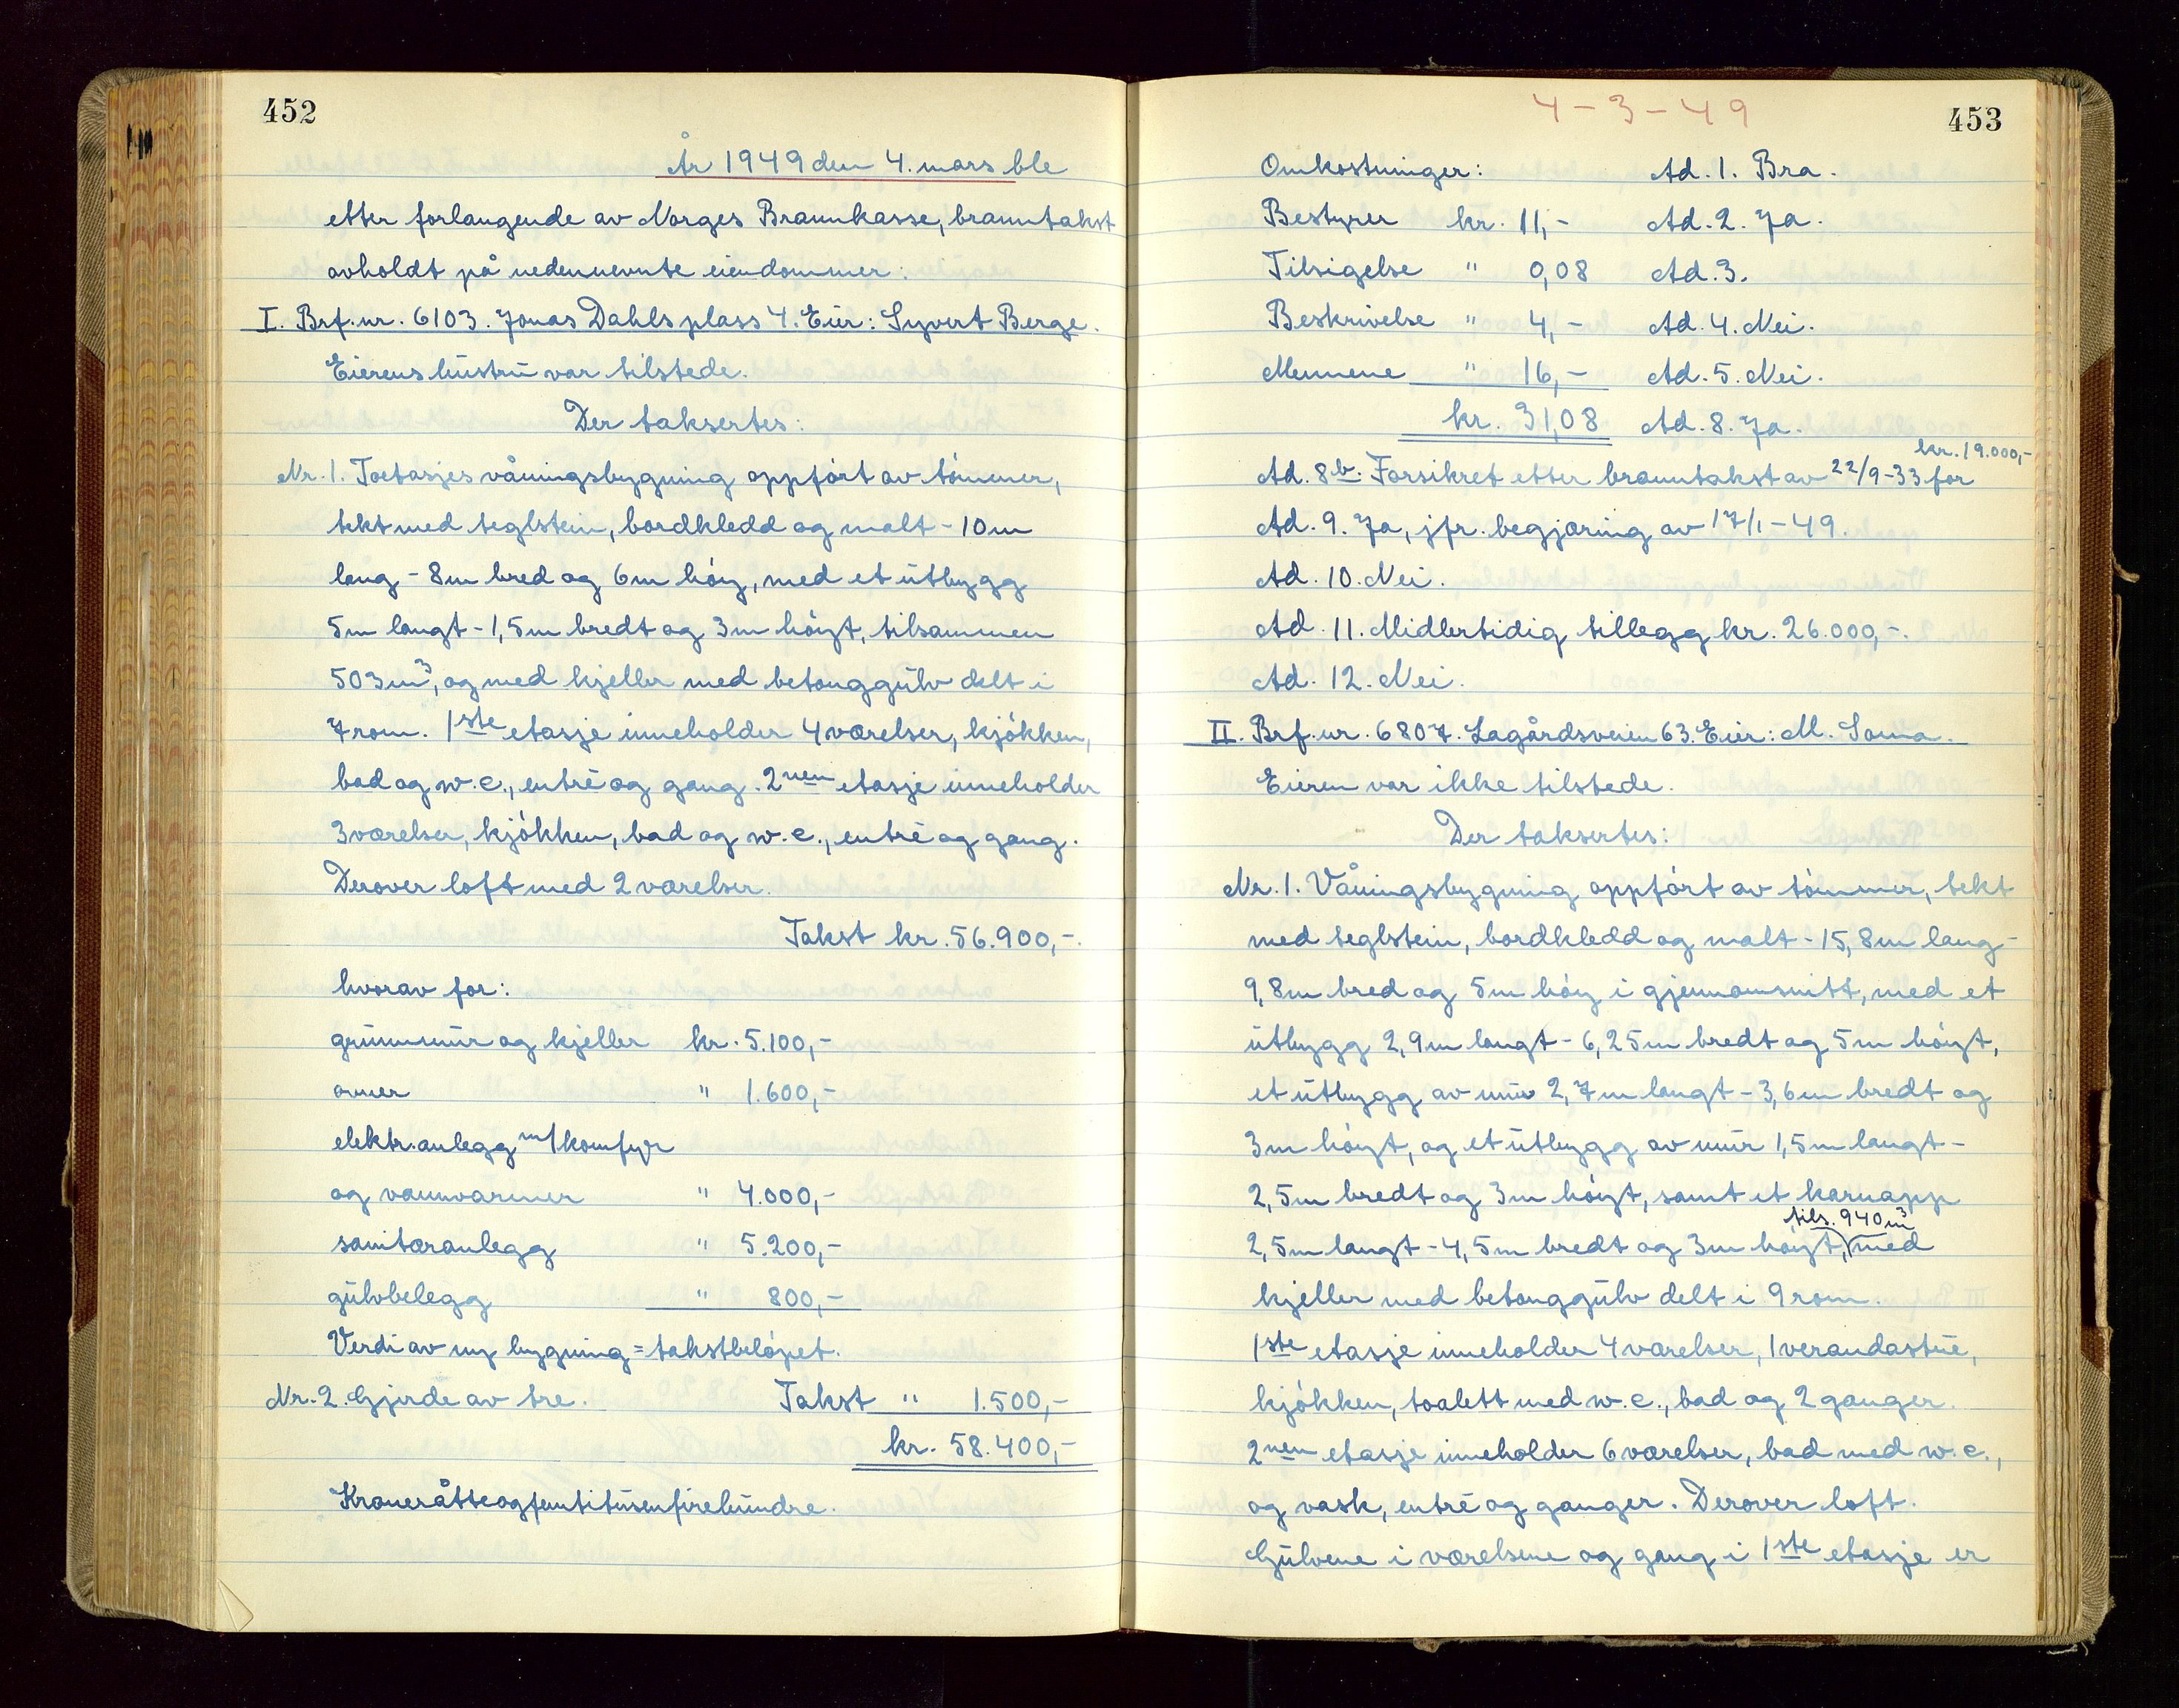 452
År 1949 den 4. mars ble
etter forlangende av Norges Brannkasse, branntakst
avholdt på nedennevnte eiendommer:
I. Brf.nr. 6103. Jonas Dahls plass 4. Eier: Syvert Berge.
Eierens hustru var tilstede.
Der taksertes:
Nr. 1. Toetasjes våningsbygning oppført av tømmer,
tekt med teglstein, bordkledd og malt - 10m
lang - 8m bred og 6m høy, med et utbygg
5m langt - 1,5m bredt og 3m høyt, tilsammen
503m³, og med kjeller med betonggulv delt i
7 rom. 1ste etasje inneholder 4 værelser, kjøkken,
bad og w.c., entré og gang. 2nen etasje inneholder
3 værelser, kjøkken, bad og w.c., entré og gang.
Derover loft med 2 værelser.
Takst kr. 56.900,-.
hvorav for:
grunnmur og kjeller kr. 5.100,-
ovner " 1.600,-
elektr.anlegg m/komfyr
og vannvarmer " 4.000,-
sanitæranlegg " 5.200,-
gulvbelegg " 800,-
Verdi av ny bygning = takstbeløpet.
Nr. 2. Gjerde av tre. Takst " 1.500,-
kr. 58.400,-
Kroneråtteogfemtitusenfirehundre.
4-3-49
453
Omkostninger: Ad. 1. Bra.
Bestyrer kr. 11,- Ad. 2. Ja.
Tilsigelse " 0,08 Ad. 3.
Beskrivelse " 4,- Ad. 4. Nei.
Mennene " 16,- Ad. 5. Nei.
kr. 31,08 Ad. 8. Ja.
kr. 19.000,-
Ad. 8b. Forsikret etter branntakst av 22/9-33 for
Ad. 9. Ja, jfr. begjæring av 17/1-49.
Ad. 10. Nei.
Ad. 11. Midlertidig tillegg kr. 26.000,-.
Ad. 12. Nei.
II. Brf.nr. 6807. Lagårdsveien 63. Eier: M. Soma.
Eieren var ikke tilstede.
Der taksertes:
Nr. 1. Våningsbygning oppført av tømmer, tekt
med teglstein, bordkledd og malt - 15,8m lang -
9,8m bred og 5m høy i gjennomsnitt, med et
utbygg 2,9m langt - 6,25m bredt og 5m høyt,
et utbygg av mur 2,7m langt - 3,6m bredt og
3m høyt, og et utbygg av mur 1,5m langt -
2,5m bredt og 3m høyt, samt et karnapp
tils. 940m³
2,5m langt - 4,5m bredt og 3m høyt, med
kjeller med betonggulv delt i 9 rom.
1ste etasje inneholder 4 værelser, 1 verandastue,
kjøkken, toalett med w.c., bad og 2 ganger.
2nen etasje inneholder 6 værelser, bad med w.c.,
og vask, entré og ganger. Derover loft.
Gulvene i værelsene og gang i 1ste etasje er